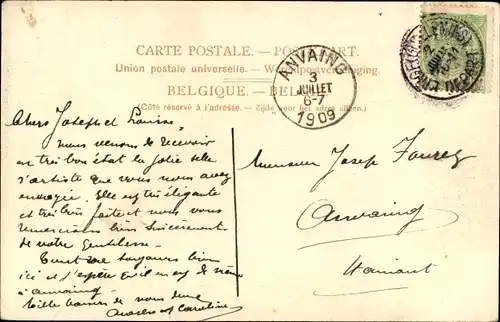 CARTE POSTALE. — POSTKAART.
Union postale universelle. — Wereldpostvereeniging.
BELGIQUE. — BELGIË.
(Côté réservé à l'adresse. — Zijde voor het adres alleen.)
ANVAING
3
JUILLET
6-7
1909
Chers Joseph et Louise
Nous venons de recevoir
en très bon état la jolie selle
d'artiste que vous nous avez
envoyée. Elle est très élégante
et très bien faite et nous vous
remercions bien sincèrement
de votre gentillesse.
Tout va toujours bien
ici et j'espère qu'il en est de même
à Anvaing.
Mille baisers de nous deux
et Caroline
Monsieur Josef Fourez
Anvaing
Hainaut